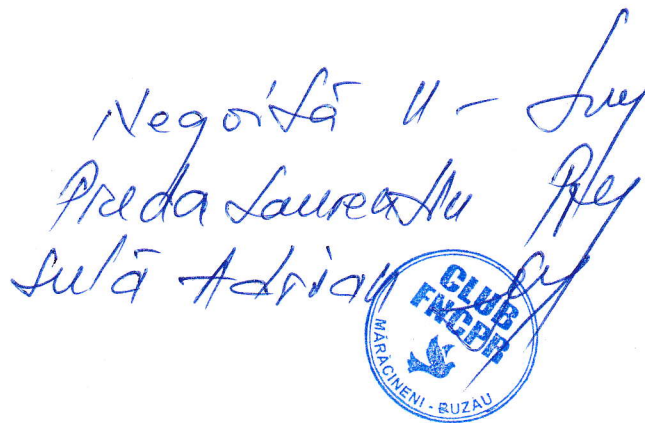 Negoiță
Preda Laurentiu
Adrian
CLUB
FNCPR
MĂRĂCINENI - BUZĂU